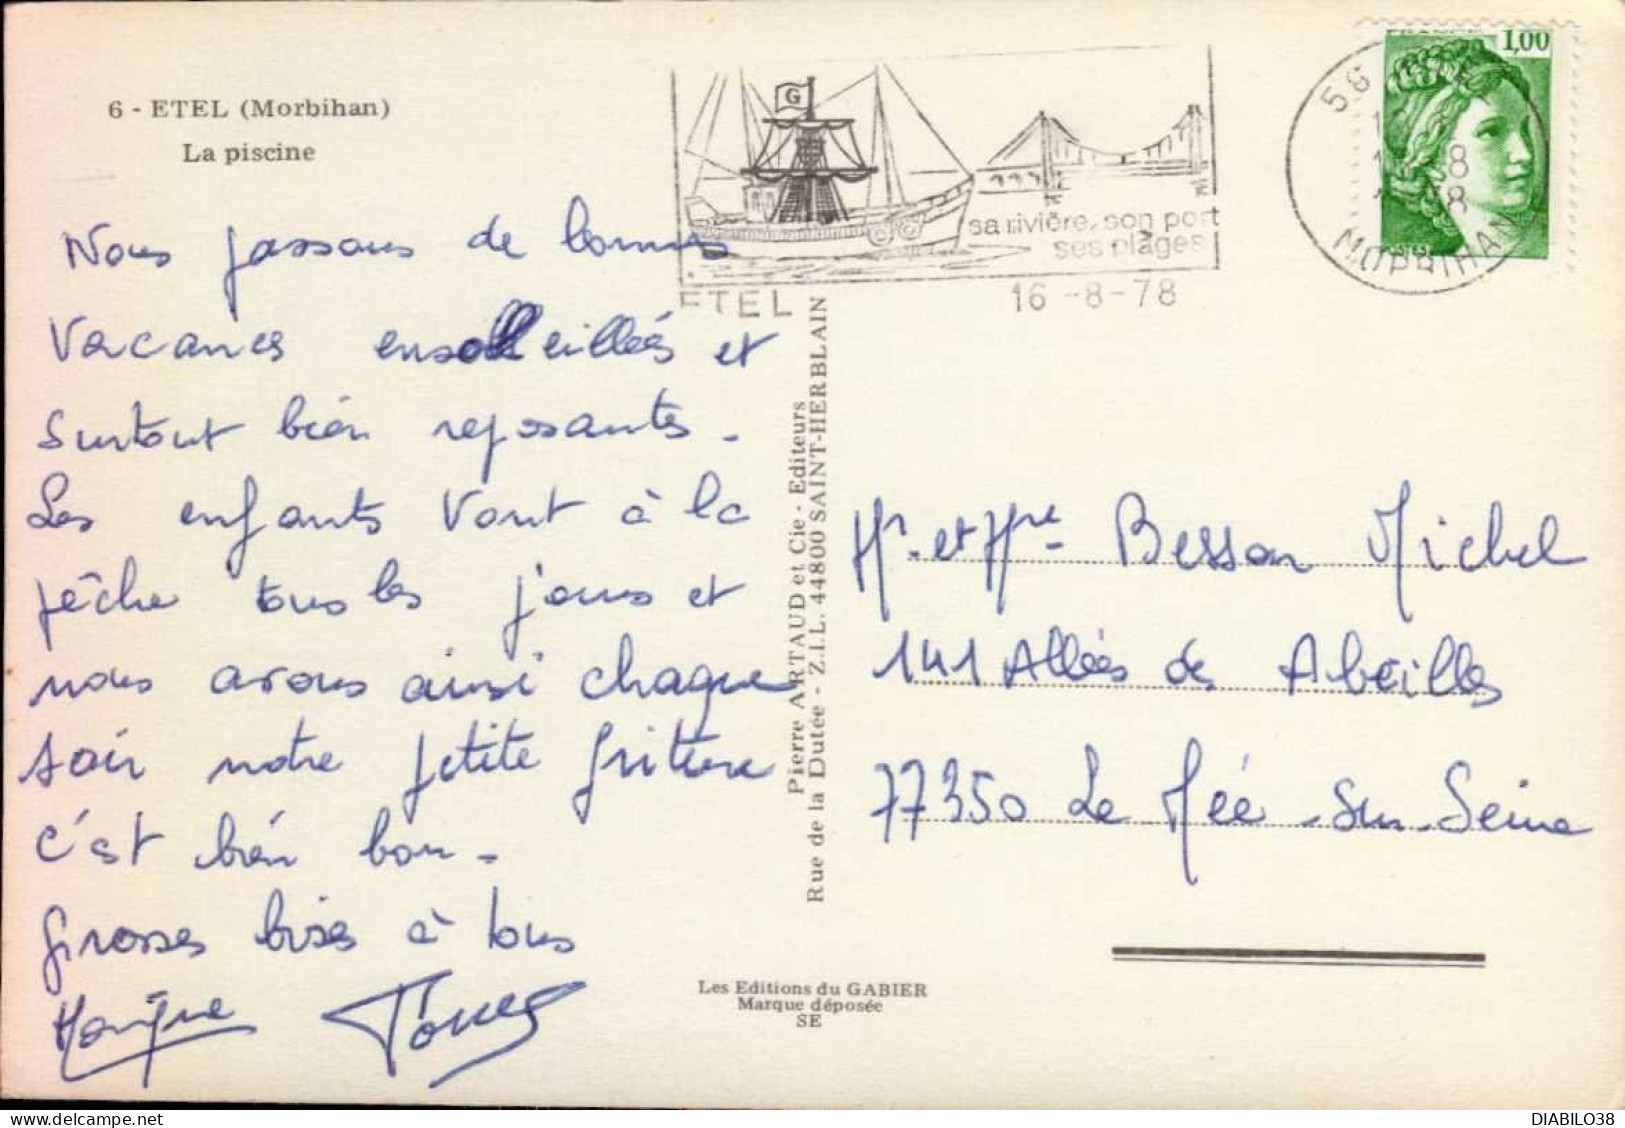 6 - ETEL (Morbihan)
La piscine
Nous passons de bonnes
vacances ensolleillées et
surtout bien reposantes.
Les enfants vont à la
pêche tous les jours et
nous avons ainsi chaque
soir notre petite friture
c'est bien bon.
Grosses bises à tous
G
sa rivière, son port
ses plages
ETEL
16-8-78
1,00
MORBIHAN
Pierre ARTAUD et Cie - Editeurs
Rue de la Dutée - Z.I.L. 44800 SAINT-HERBLAIN
Mr et Mme Besson Michel
141 Allées des Abeilles
77350 Le Mée-sur-Seine
Les Editions du GABIER
Marque déposée
SE
DIABILO38